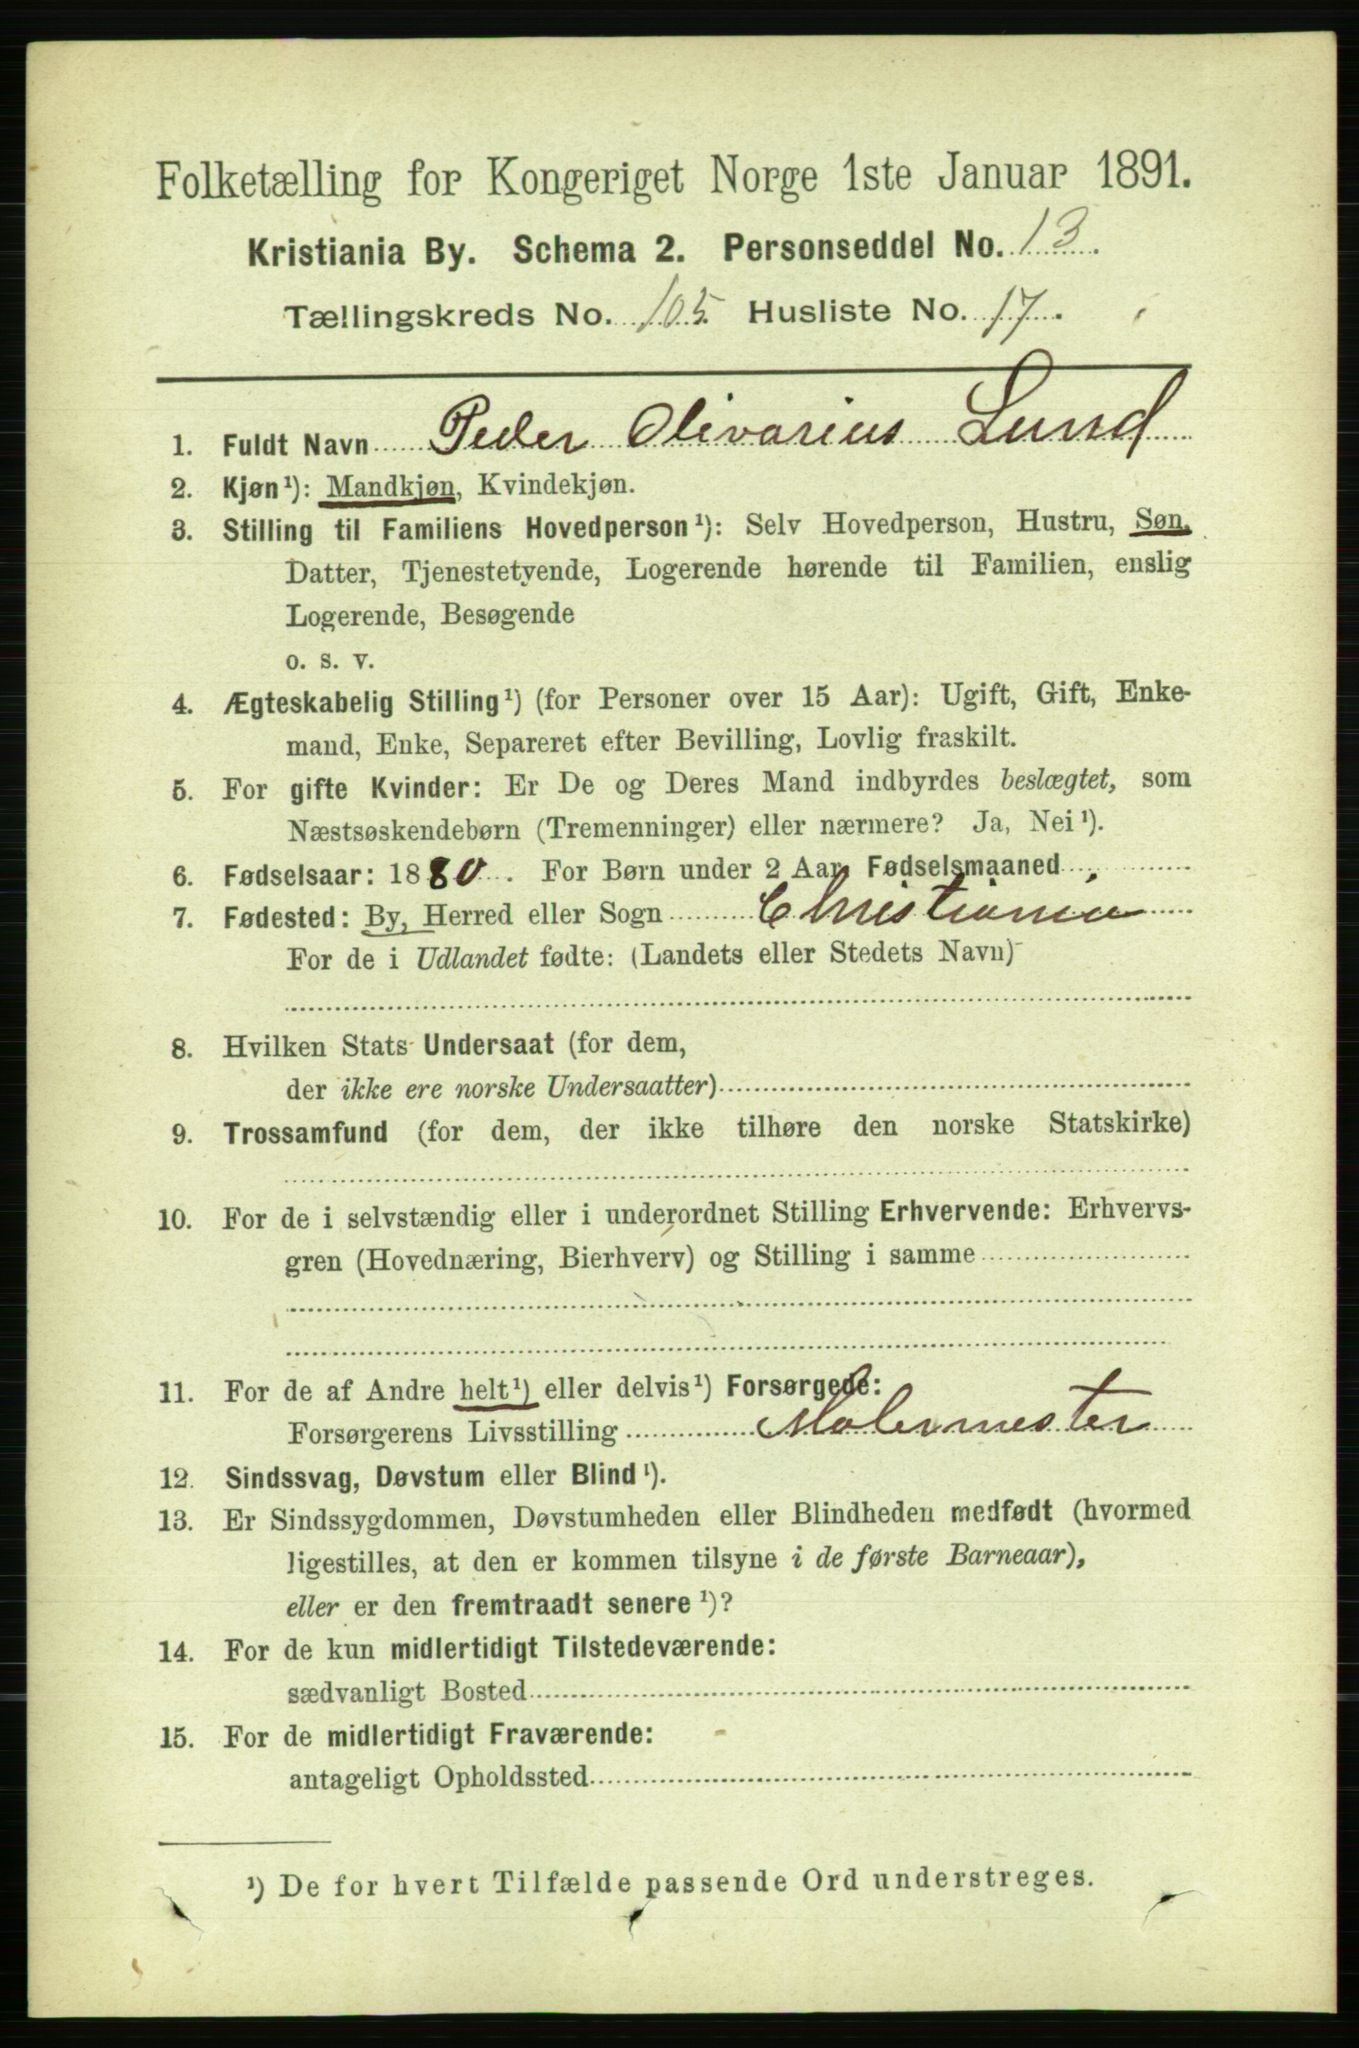 Folketælling for Kongeriget Norge 1ste Januar 1891.
Kristiania By. Schema 2. Personseddel No. 13.
Tællingskreds No. 105 Husliste No. 17.
1. Fuldt Navn Peder Olivarius Lund
2. Kjøn¹): Mandkjøn, Kvindekjøn.
3. Stilling til Familiens Hovedperson¹): Selv Hovedperson, Hustru, Søn,
Datter, Tjenestetyende, Logerende hørende til Familien, enslig
Logerende, Besøgende
o. s. v.
4. Ægteskabelig Stilling¹) (for Personer over 15 Aar): Ugift, Gift, Enke-
mand, Enke, Separeret efter Bevilling, Lovlig fraskilt.
5. For gifte Kvinder: Er De og Deres Mand indbyrdes beslægtet, som
Næstsøskendebørn (Tremenninger) eller nærmere? Ja, Nei¹).
6. Fødselsaar: 1880. For Børn under 2 Aar, Fødselsmaaned
7. Fødested: By, Herred eller Sogn Christiania
For de i Udlandet fødte: (Landets eller Stedets Navn)
8. Hvilken Stats Undersaat (for dem,
der ikke ere norske Undersaatter)
9. Trossamfund (for dem, der ikke tilhøre den norske Statskirke)
10. For de i selvstændig eller i underordnet Stilling Erhvervende: Erhvervs-
gren (Hovednæring, Bierhverv) og Stilling i samme
11. For de af Andre helt¹) eller delvis¹) Forsørgede:
Forsørgerens Livsstilling Malermester
12. Sindssvag, Døvstum eller Blind¹).
13. Er Sindssygdommen, Døvstumheden eller Blindheden medfødt (hvormed
ligestilles, at den er kommen tilsyne i de første Barneaar),
eller er den fremtraadt senere¹)?
14. For de kun midlertidigt Tilstedeværende:
sædvanligt Bosted
15. For de midlertidigt Fraværende:
antageligt Opholdssted
¹) De for hvert Tilfælde passende Ord understreges.